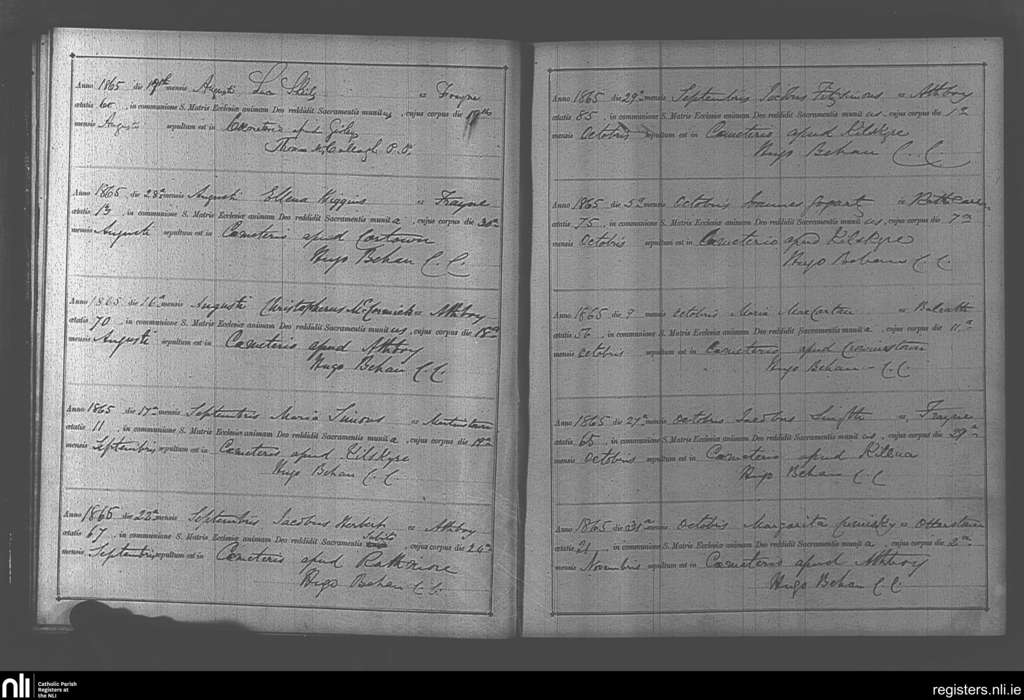 Anno 1865 die 17th mensis Augusti ex Frayne
ætatis 60, in communione S. Matris Ecclesiæ animam Deo reddidit Sacramentis munitus, cujus corpus die 19th
mensis Augusti sepultum est in Cœmeterio apud
Thomas McCullagh P.P.
Anno 1865 die 28a mensis Augusti Ellena Higgins ex Frayne
ætatis 13, in communione S. Matris Ecclesiæ animam Deo reddidit Sacramentis munita, cujus corpus die 30a
mensis Augusti sepultum est in Cœmeterio apud Cortown
Hugo Behan C.C.
Anno 1865 die 16a mensis Augusti Christopherus McCormick ex Athboy
ætatis 70, in communione S. Matris Ecclesiæ animam Deo reddidit Sacramentis munitus, cujus corpus die 18a
mensis Augusti sepultum est in Cœmeterio apud Athboy
Hugo Behan C.C.
Anno 1865 die 17a mensis Septembris Maria Simons ex
ætatis 11, in communione S. Matris Ecclesiæ animam Deo reddidit Sacramentis munita, cujus corpus die 19a
mensis Septembris sepultum est in Cœmeterio apud Kilskyre
Hugo Behan C.C.
Anno 1865 die 22a mensis Septembris Jacobus Herbert ex Athboy
ætatis 67, in communione S. Matris Ecclesiæ animam Deo reddidit Sacramentis subito, cujus corpus die 24a
mensis Septembris sepultum est in Cœmeterio apud Rathmore
Hugo Behan C.C.
Anno 1865 die 29a mensis Septembris Jacobus Fitzsimons ex Athboy
ætatis 85, in communione S. Matris Ecclesiæ animam Deo reddidit Sacramentis munitus, cujus corpus die 1a
mensis Octobris sepultum est in Cœmeterio apud Kilskyre
Hugo Behan C.C.
Anno 1865 die 5a mensis Octobris Joannes Fogarty ex
ætatis 75, in communione S. Matris Ecclesiæ animam Deo reddidit Sacramentis munitus, cujus corpus die 7a
mensis Octobris sepultum est in Cœmeterio apud Kilskyre
Hugo Behan C.C.
Anno 1865 die 9 mensis Octobris Maria MacCartan ex Balrath
ætatis 56, in communione S. Matris Ecclesiæ animam Deo reddidit Sacramentis munita, cujus corpus die 11a
mensis Octobris sepultum est in Cœmeterio apud
Hugo Behan C.C.
Anno 1865 die 27a mensis Octobris Jacobus Smyth ex Frayne
ætatis 65, in communione S. Matris Ecclesiæ animam Deo reddidit Sacramentis munitus, cujus corpus die 29a
mensis Octobris sepultum est in Cœmeterio apud
Hugo Behan C.C.
Anno 1865 die 31a mensis Octobris Margarita ex
ætatis 21, in communione S. Matris Ecclesiæ animam Deo reddidit Sacramentis munita, cujus corpus die 2a
mensis sepultum est in Cœmeterio apud Athboy
Hugo Behan C.C.
nli
Catholic Parish
Registers at
the NLI
registers.nli.ie